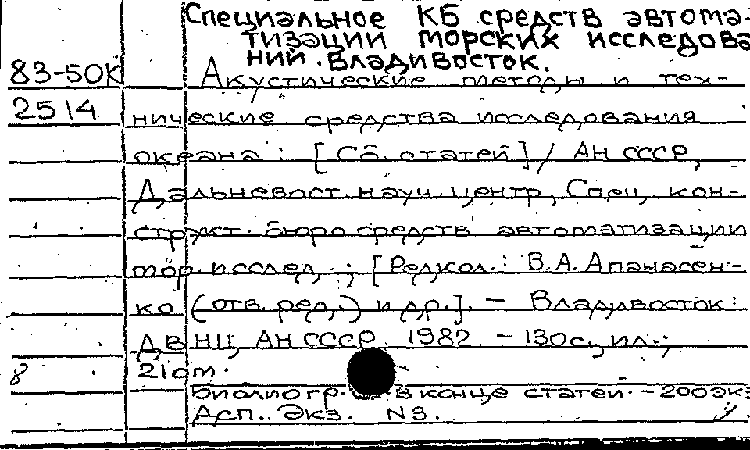 Специальное КБ средств автома-
тизации морских исследова
ний. Владивосток.
83-50К Акустические методы и тех-
2514 нические средства исследования
океана : [Сб. статей] / АН СССР,
Дальневост. науч. центр, Спец. кон-
структ. бюро средств автоматизации
мор. исслед. ; [Редкол.: В.А. Апанасен-
ко (отв. ред.) и др.]. - Владивосток :
ДВНЦ АН СССР, 1982 - 130с, ил.;
8 21 см.
Библиогр. в конце статей. - 200 экз
Асп. Экз. N3.